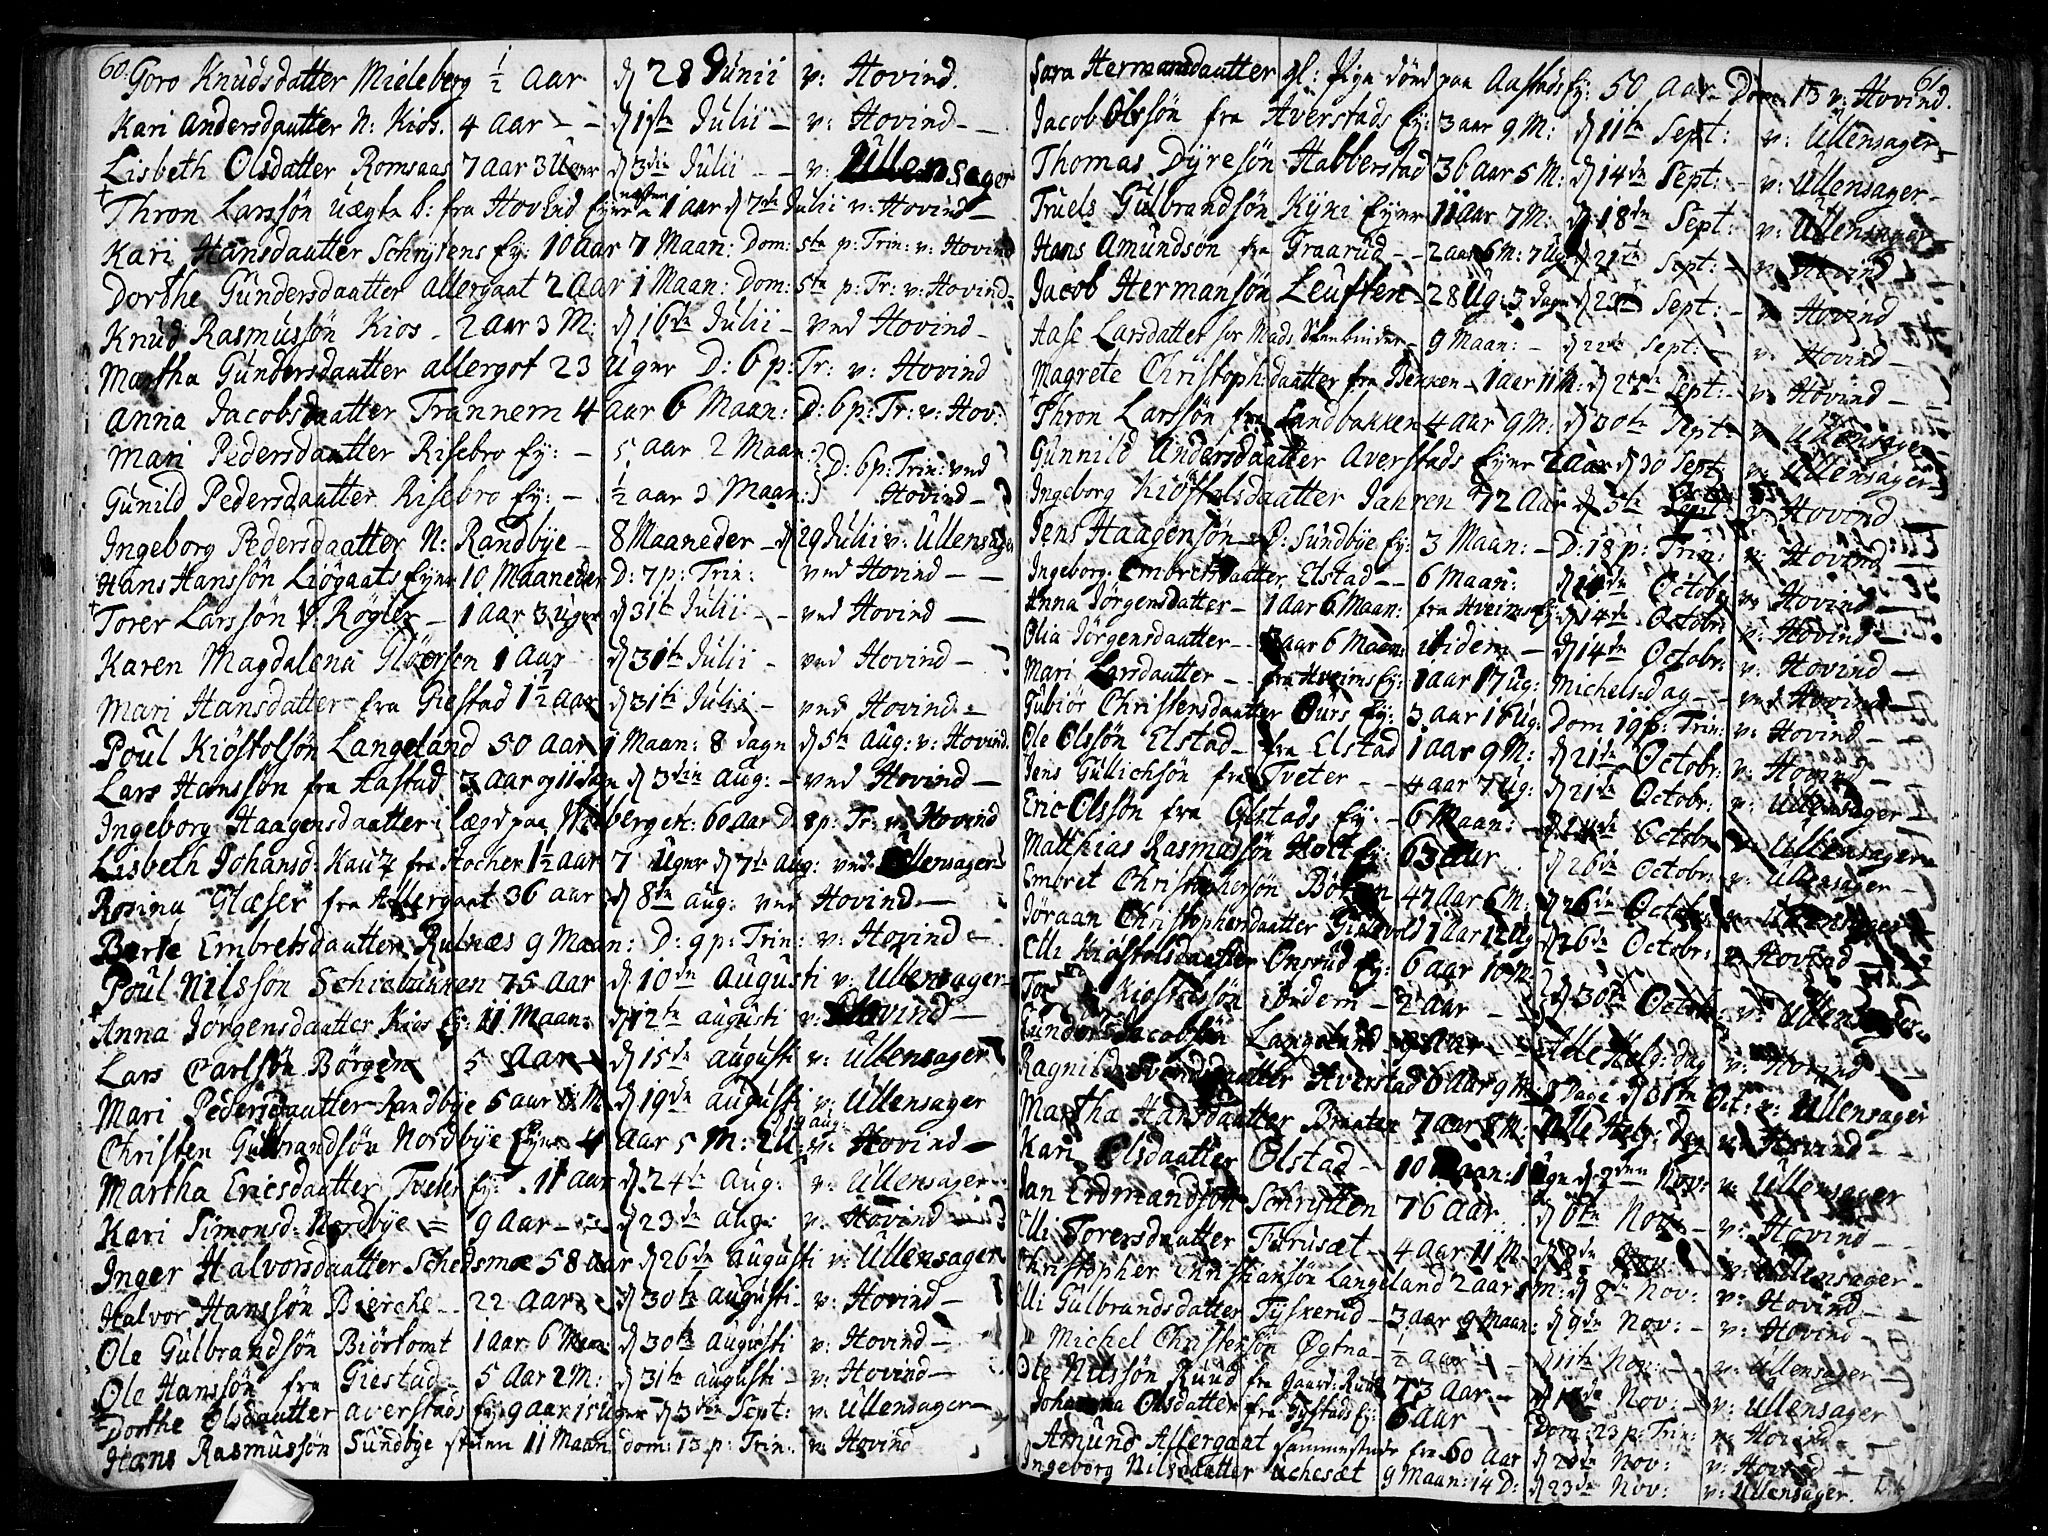 60.
Goro Knudsdatter Mieleberg ½ Aar d 28 Junii v: Hovind.
Kari Andersdaatter N: Kios. 4 Aar - - d 1ste Julii - v: Hovind - -
Lisbeth Olsdatter Romsaas 7 aar 3 Uger d 3die Julii - - v: Ullensager
+ Thron Larssøn uægte b: fra Hovind Eyer nesten 1 aar d 7de Julii v: Hovind -
Kari Hansdaatter Schrytens Ey: 10 aar 7 Maan: Dom: 5te p: Trin: v: Hovind
Dorthe Gundersdaatter allergaat 2 Aar 1 Maan: Dom: 5te p: Tr: v: Hovind -
Knud Rasmussøn Kios - 2 aar 3 M: d 16de Julii - ved Hovind -
Martha Gundersdaatter allergot 23 Uger D: 6 p: Tr: v: Hovind
Anna Jacobsdaatter Trannem 4 aar 6 Maan: D: 6 p: Tr: v: Hov:
Mari Pedersdaatter Risebro Ey: - 5 aar 2 Maan: D: 6 p: Trin: ved
Gunild Pedersdaatter Risebro Ey: - ½ aar 3 Maan: Hovind -
Ingeborg Pedersdaatter N: Randbye - 8 Maaneder - d 29 Julii v: Ullensager
Hans Hanssøn Liøgaats Eyer 10 Maaneder D: 7 p: Trin: ved Hovind - -
+ Torer Larssøn V: Røgler - 1 aar 3 uger d 31te Julii - ved Hovind -
Karen Magdalena Gløersen 1 Aar d 31te Julii - ved Hovind -
Mari Hansdatter fra Giestad 1½ aar d 31te Julii - ved Hovind -
Poul Kiøstolsøn Langeland 50 aar 1 Maan: 8 dage d 5te Aug: v: Hovind.
Lars Hanssøn fra Aastad 3 aar og 11 dage d 3die aug: - ved Hovind -
Ingeborg Haagensdaatter lægd paa berget: 60 aar D: 8 p: Tr: v: Hovind
Lisbeth Johansd: Kautz fra Stocher 1½ aar 7 Uger d 7de Aug: ved Ullensager
Rosina Glæser fra Allergaat 36 aar d 8de aug: ved Hovind -
Berte Embretsdaatter Rulnæs 9 Maan: D: 9 p: Trin: v: Hovind -
Poul Nilssøn Schiabakken 75 Aar d 10de Augusti v: Ullensager -
+ Anna Jørgensdaatter Kios Ey: 11 Maan: d 12te augusti v: Hovind -
Lars Carlsøn Børgen 5 Aar - d 15de augusti v: Ullensager
Mari Pedersdaatter Randbye 5 aar 8 M: d 19de augusti v: Ullensager
Christen Gulbrandsøn Nordbye Eyer 4 Aar 5 M: 2 U: 19 aug: v: Hovind -
Martha Ericsdaatter Ey: 11 aar d 24te Aug: v: Ullensager -
Kari Simonsd: Nordbye = 9 Aar - d 23de aug: v: Hovind -
Inger Halvorsdaatter Schedsmoe 58 aar d 26de augusti v: Ullensager
Halvor Hanssøn Bierche - 22 aar d 30te augusti - v: Hovind -
Ole Gulbrandsøn Biørtomt 1 aar 6 Maan: d 30te augusti v: Hovind -
Ole Hanssøn fra Giestad - 5 Aar 2 M: d 31te augusti - v: Hovind -
+ Dorthe Olsdaatter averstads Ey: 9 aar 15 Uger d 3die Sept: v: Ullensager -
Hans Rasmussøn Sundbye 11 Maan: dom: 13 p: Trin: v: Hovind
61.
Sara Hermansdaatter gl: Pige dønd paa Aastads Ey: 50 Aar - Dom: 13 v: Hovind.
Jacob Olssøn fra Hverstads Ey: 3 aar 9 M: d 11te Sept: v: Ullensager -
Thomas Dyresøn Habberstad 36 Aar 5 M: d 14de Sept: - v: Ullensager -
Truels Gulbrandsøn Kyni Eyer 11 Aar 7 M: d 18de Sept: v: Ullensager
Hans Amundsøn fra Graarud - - 2 aar 6 M: 7 Ug: d 21de Sept: - v: Hovind
Jacob Hermansøn Leuften - 28 Ug: 3 dage d 23de Sept: - v: Hovind
Aase Larsdatter for Mads - 9 Maan: - d 22de Sept: - v: Hovind -
Magrete Christophdaatter fra Bekken - 1 aar 11 M: d Sept: - v: Hovind -
+ Thron Larssøn fra Sandbakken 4 aar 9 M: d 30te Sept: v: Ullensager
Gunnild Andersdaatter Averstads Eyer 2 Aar d 30 Sept: v: Ullensager -
Ingeborg Kiøstolsdaatter Jahren 72 Aar d 5te v: Hovind
Jens Haagensøn - Ø: Sundbye Ey: 3 Maan: - D: 18 p: Trin: v: Hovind -
Ingeborg Embretsdaatter Elstad - - 6 Maan: d Octobr: v: Hovind -
Anna Jørgensdatter - 1 aar 6 Maan: fra Hveims Ey: d 14de Octobr: v: Hovind -
Olia Jørgensdaatter - aar 6 Maan: ibidem - d 14de Octobr: v: Hovind -
Mari Larsdaatter - - fra Hveims Ey: 1 aar 17 Ug: Michels dag - - ved Hovind -
Gubiør Christensdaatter Ours Ey: 3 aar 16 Ug: Dom 19 p: Trin: v: Hovind -
Ole Olssøn Elstad - fra Elstad 1 aar 9 M: d 21de Octobr: v: Hovind -
Jens Gullichsøn fra Tveter - - 4 aar 7 Ug: d 21de Octobr: v: Ullensager -
Eric Olssøn fra Olstads Ey: - 6 Maan: - Octobr: v: Ullensager
Matthias Rasmussøn Holt Ey: 63 Aar d 26de Octobr: v: Ullensager -
Embret Christophersøn 47 Aar 6 M: d 26de Octobr: v: Ullensager
Jøraan Christophersdaatter 1 Aar 12 Ug: d 26de Octobr: v: Hovind
Elli Kiøstolsdaatter Onsrud Ey: 6 aar 10 M:
Kiøstelsøn ibidem - 2 aar - d 30te Octobr: v: Ullensager
Gunder Jacobsøn Langeland Aar - Alle Helg: dag v: Hovind -
Ragnild daatter Hverstad 6 aar 9 M: 8 Dage d 31te Oct: v: Ullensager
Martha Hansdaatter Braaten 7 aar 8 M: Alle Helg: dag v: Hovind -
Kari Olsdaatter Olstad - 10 Maan: 1 Uge d 2den Nov: v: Ullensager
Jan Erdmandsøn Schrytten 76 Aar d 6te Nov: - v: Hovind -
Elli Torersdaatter Furusæt - 4 aar 11 M: d 8de Nov: v: Ullensager -
Christopher Christiansøn Langeland 2 aar M: d 8de Nov: v: Hovind -
Elli Gulbrandsdatter Tyskerud - 3 aar 9 Maan: d 9de Nov: - v: Hovind -
Michel Christensøn Øgtna - ½ aar - d 11te Nov: - v: Ullensager -
Ole Nilssøn Ruud fra Gaard: Ruud 73 Aar - d 18de Nov: - v: Ullensager
Johanna Olsdatter fra Gystads Ey: 6 Aar - Dom: 23 p: Trin: v: Hovind -
Amund Allergaat sammestads fra 60 Aar d Nov: v: Hovind -
Ingeborg Nilsdaatter achesæt 9 Maan: 14 D: d 23de Nov: v: Ullensager.